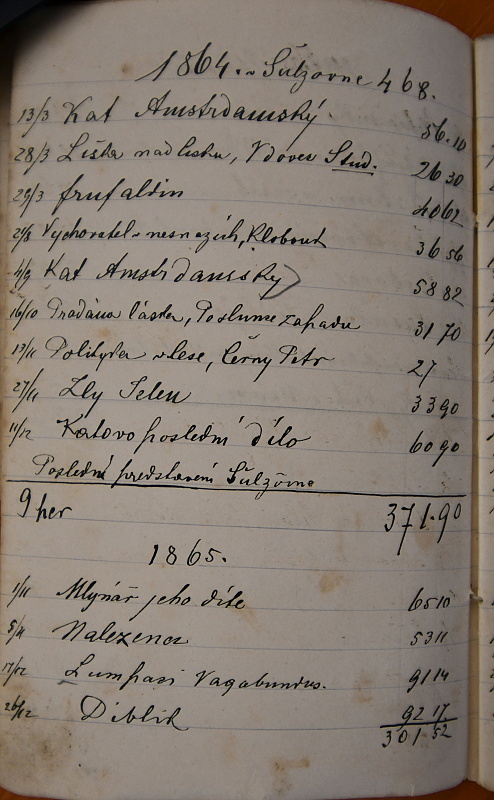 1864. v Šulzovne 468.
13/3 Kat Amstrdamský 56.10
28/3 Liška nad lišku, Vdovec Stud. 26 30
29/3 frufaldin 40 62
Vychovatel v nesnazích, Klobouk 36 56
4/9 Kat Amstrdamský 58 82
16/10 Prodána láska, Poslume zapadu 31 70
13/11 Polityka v lese, Černy Petr 27
27/11 Zly Jelen 33 90
11/12 Katovo poslední dílo 60 90
Poslední představení Šulzóvne
9 her 371.90
1865.
1/11 Mlynář jeho díte 65 10
5/11 Nalezenec 53 11
17/12 Lumpasi Vagabundus. 91 14
26/12 Diblik 92 17
301 52